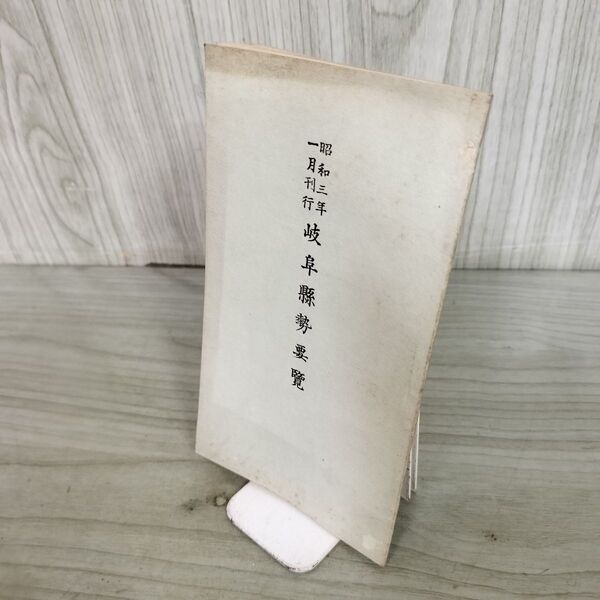 昭和三年
一月刊行
岐阜縣勢要覽